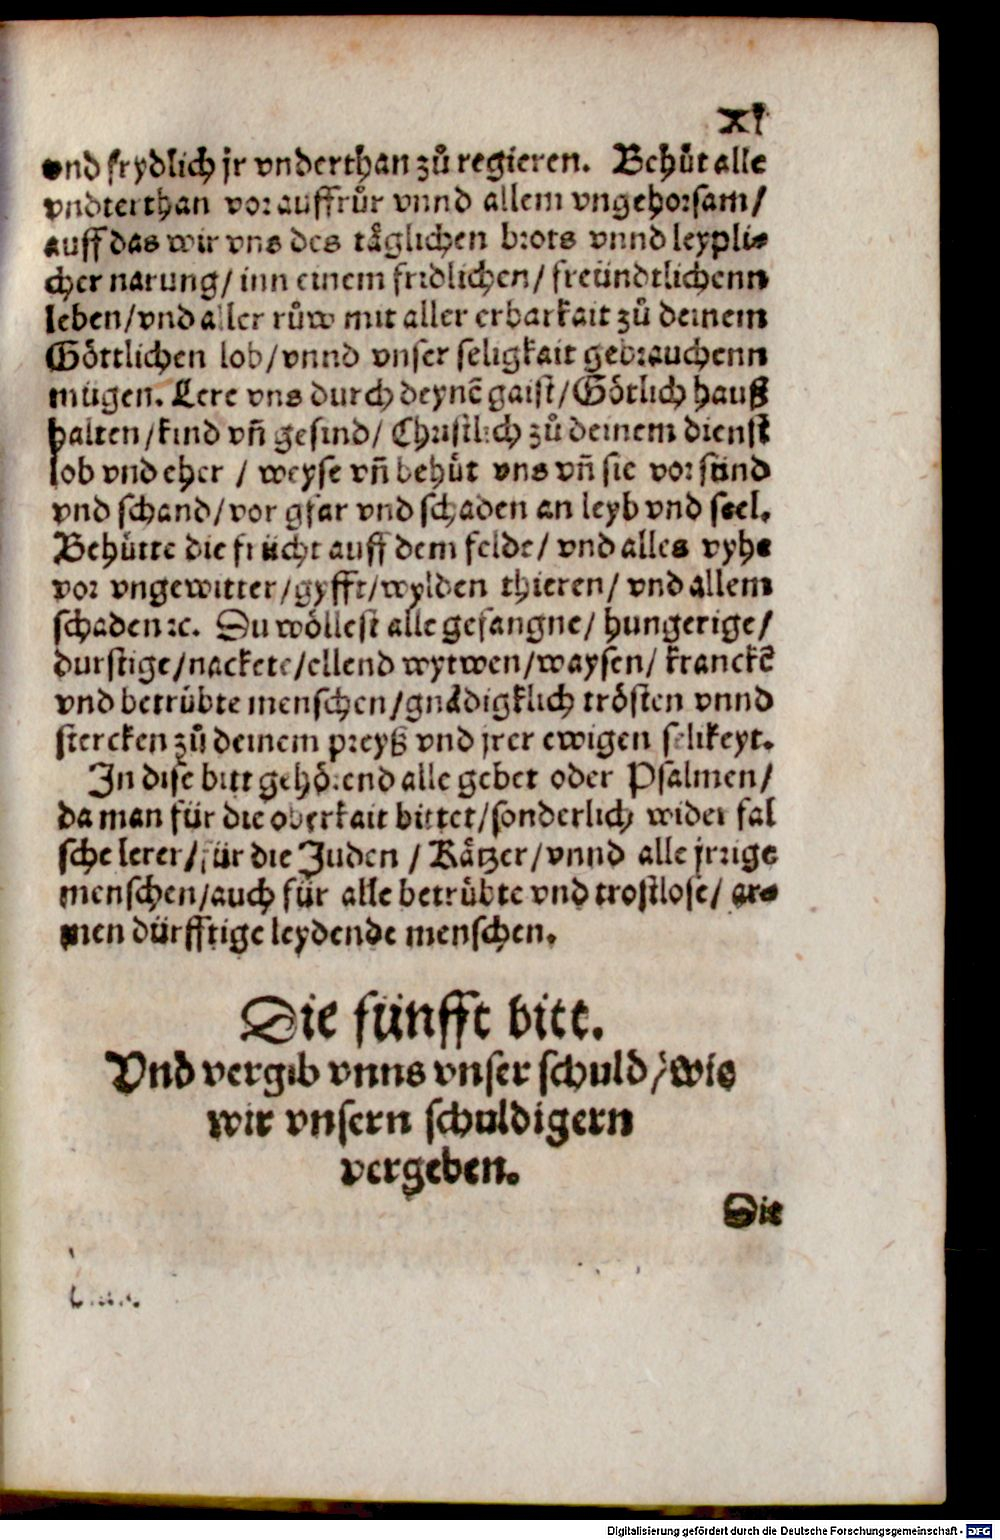 xj
vnd frydlich jr vnderthan zuͦ regieren. Behuͤt alle
vndterthan vor auffruͦr vnnd allem vngehorsam/
auff das wir vns des taͤglichen brots vnnd leypli-
cher narung/ inn einem fridlichen/ freündtlichenn
leben/ vnd aller ruͦw mit aller erbarkait zuͦ deinem
Goͤttlichen lob/ vnnd vnser seligkait gebrauchenn
mügen. Lere vns durch deynē gaist/ Goͤtlich hauß
halten/ kind vn̄ gesind/ Christlich zuͦ deinem dienst
lob vnd eher / weyse vn̄ behuͤt vns vn̄ sie vor sünd
vnd schand/ vor gfar vnd schaden an leyb vnd seel.
Behuͤtte die frücht auff dem felde/ vnd alles vyhe
vor vngewitter/ gyfft/ wylden thieren/ vnd allem
schaden ꝛc. Du woͤllest alle gefangne/ hungerige/
durstige/ nackete/ ellend wytwen/ waysen/ kranckē
vnd betruͤbte menschen/ gnaͤdigklich troͤsten vnnd
stercken zuͦ deinem preyß vnd jrer ewigen selikeyt.
In dise bitt gehoͤrend alle gebet oder Psalmen/
da man für die oberkait bittet/ sonderlich wider fal
sche lerer/ für die Juden / Kaͤtzer/ vnnd alle jrrige
menschen/ auch für alle betruͤbte vnd trostlose/ ar-
men dürfftige leydende menschen.
Die fünfft bitt.
Vnd vergib vnns vnser schuld/ wie
wir vnsern schuldigern
vergeben.
Die
Digitalisierung gefördert durch die Deutsche Forschungsgemeinschaft - DFG